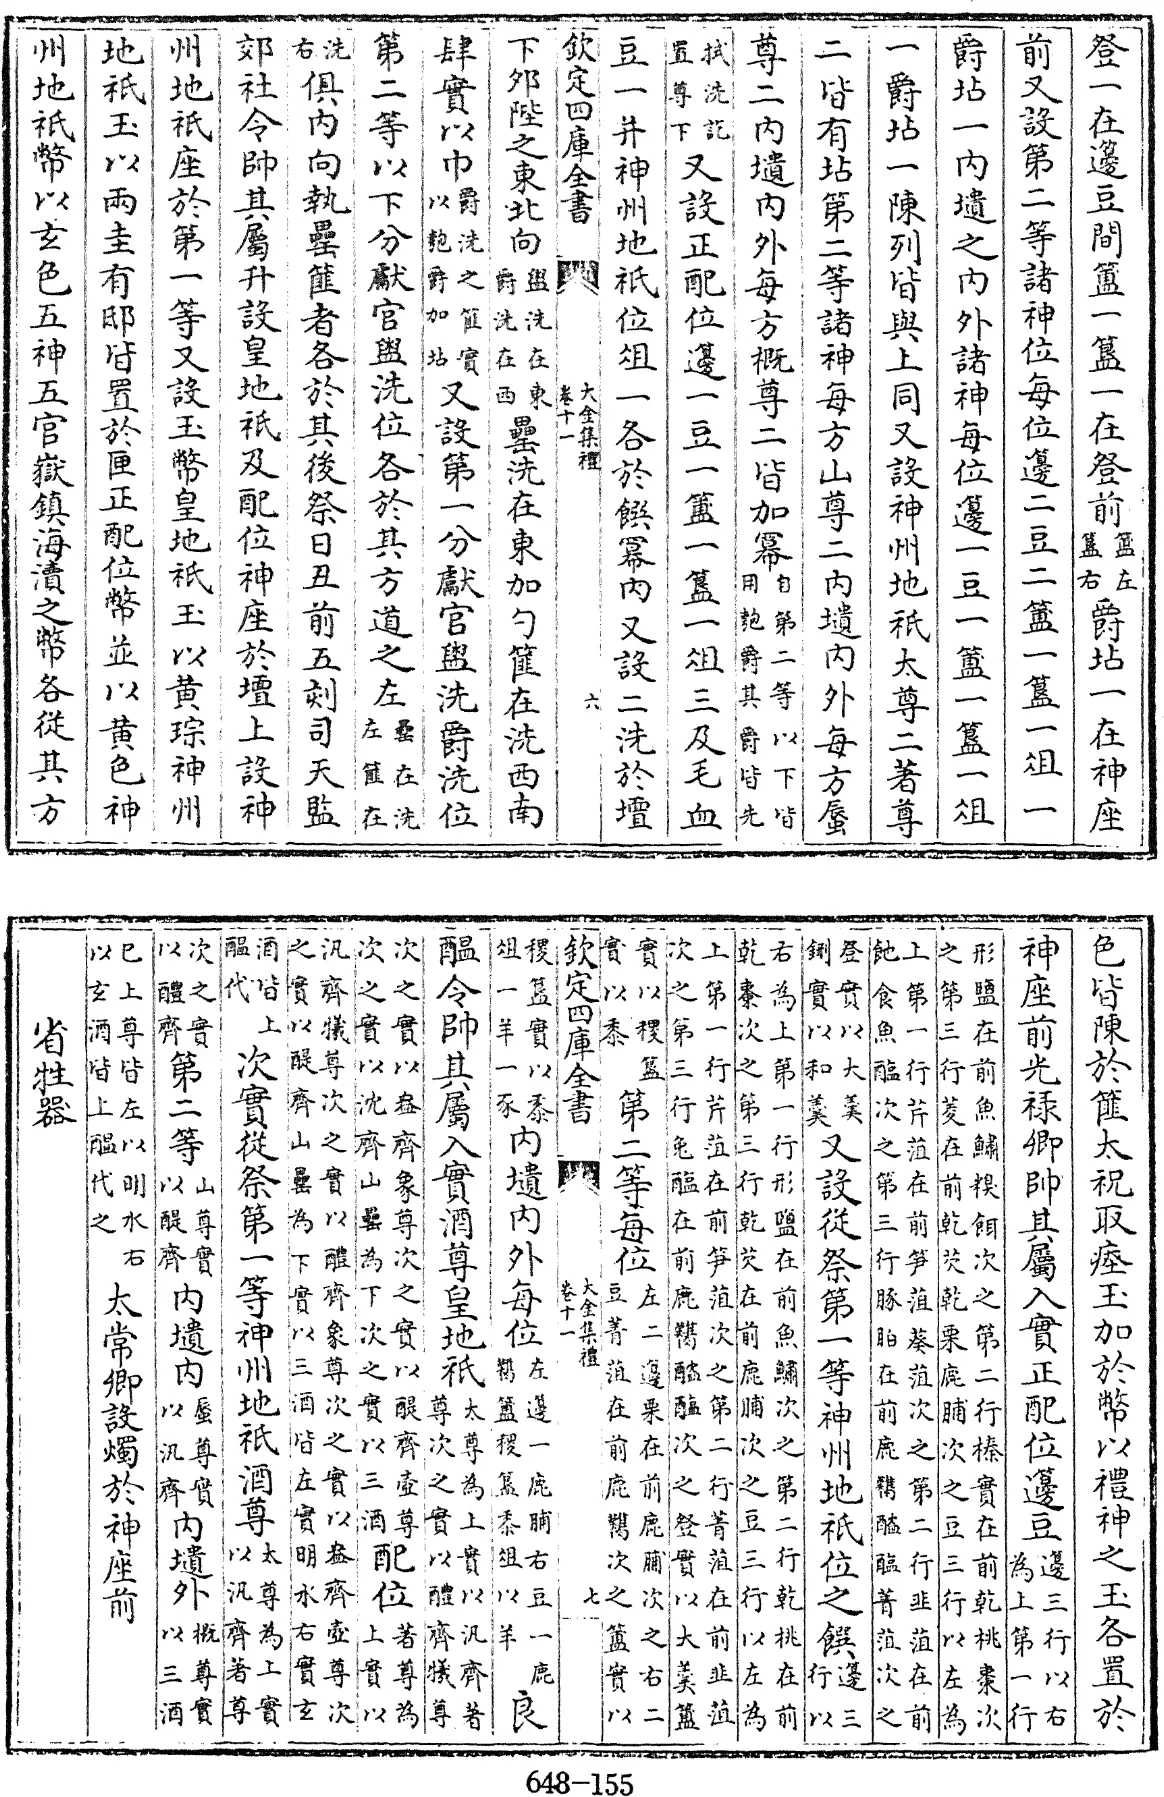 登一在籩豆間簠一簋一在登前簠左簋右爵坫一在神座
前又設第二等諸神位每位籩二豆二簠一簋一俎一
爵坫一内壝之内外諸神每位籩一豆一簠一簋一俎
一爵坫一陳列皆與上同又設神州地祇太尊二著尊
二皆有坫第二等諸神每方山尊二内壝内外每方蜃
尊二内壝内外每方概尊二皆加冪自第二等以下皆用匏爵其爵皆先
拭洗訖置尊下又設正配位籩一豆一簠一簋一俎三及毛血
豆一并神州地祇位俎一各於饌冪内又設二洗於壇
欽定四庫全書 大金集禮卷十一 六
下夘陛之東北向盥洗在東爵洗在西罍洗在東加勺篚在洗西南
肆實以巾爵洗之篚實以匏爵加坫又設第一分獻官盥洗爵洗位
第二等以下分獻官盥洗位各於其方道之左罍在洗左篚在
洗右俱内向執罍篚者各於其後祭日丑前五刻司天監
郊社令帥其屬升設皇地祇及配位神座於壇上設神
州地祇座於第一等又設玉幣皇地祇玉以黄琮神州
地祇玉以兩圭有邸皆置於匣正配位幣並以黄色神
州地祇幣以玄色五神五官嶽鎮海瀆之幣各從其方
色皆陳於篚太祝取瘞玉加於幣以禮神之玉各置於
神座前光禄卿帥其屬入實正配位籩豆籩三行以右為上第一行
形鹽在前魚鱐糗餌次之第二行榛實在前乾桃棗次
之第三行菱在前乾芡乾栗鹿脯次之豆三行以左為
上第一行芹菹在前笋菹葵菹次之第二行韭菹在前
飽食魚醢次之第三行豚胉在前鹿臡醓醢菁菹次之
登實以大羮鉶實以和羮又設從祭第一等神州地祇位之饌籩三行以
右為上第一行形鹽在前魚鱐次之第二行乾桃在前
乾棗次之第三行乾芡在前鹿脯次之豆三行以左為
上第一行芹菹在前笋菹次之第二行菁菹在前韭菹
次之第三行兎醢在前鹿臡醓醢次之登實以大羮簠
實以稷簋實以黍第二等每位左二籩栗在前鹿脯次之右二豆菁菹在前鹿臡次之簠實以
欽定四庫全書 大金集禮卷十一 七
稷簋實以黍俎一羊一豕内壝内外每位左籩一鹿脯右豆一鹿臡簠稷簋黍俎以羊良
醖令帥其屬入實酒尊皇地祇太尊為上實以汎齊著尊次之實以醴齊犧尊
次之實以盎齊象尊次之實以醍齊壼尊次之實以沈齊山罍為下次之實以三酒配位著尊為上實以
汎齊犧尊次之實以醴齊象尊次之實以盎齊壼尊次之實以醍齊山罍為下實以三酒皆左實明水右實玄
酒皆上醖代次實從祭第一等神州地祇酒尊太尊為上實以汎齊著尊
次之實以醴齊第二等山尊實以醍齊内壝内蜃尊實以汎齊内壝外概尊實以三酒
已上尊皆左以明水右以玄酒皆上醖代之太常卿設燭於神座前
省牲器
648-155